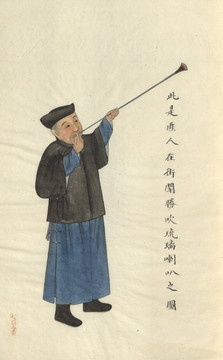 此是匪人在街閙勝吹琉璃喇叭之圖